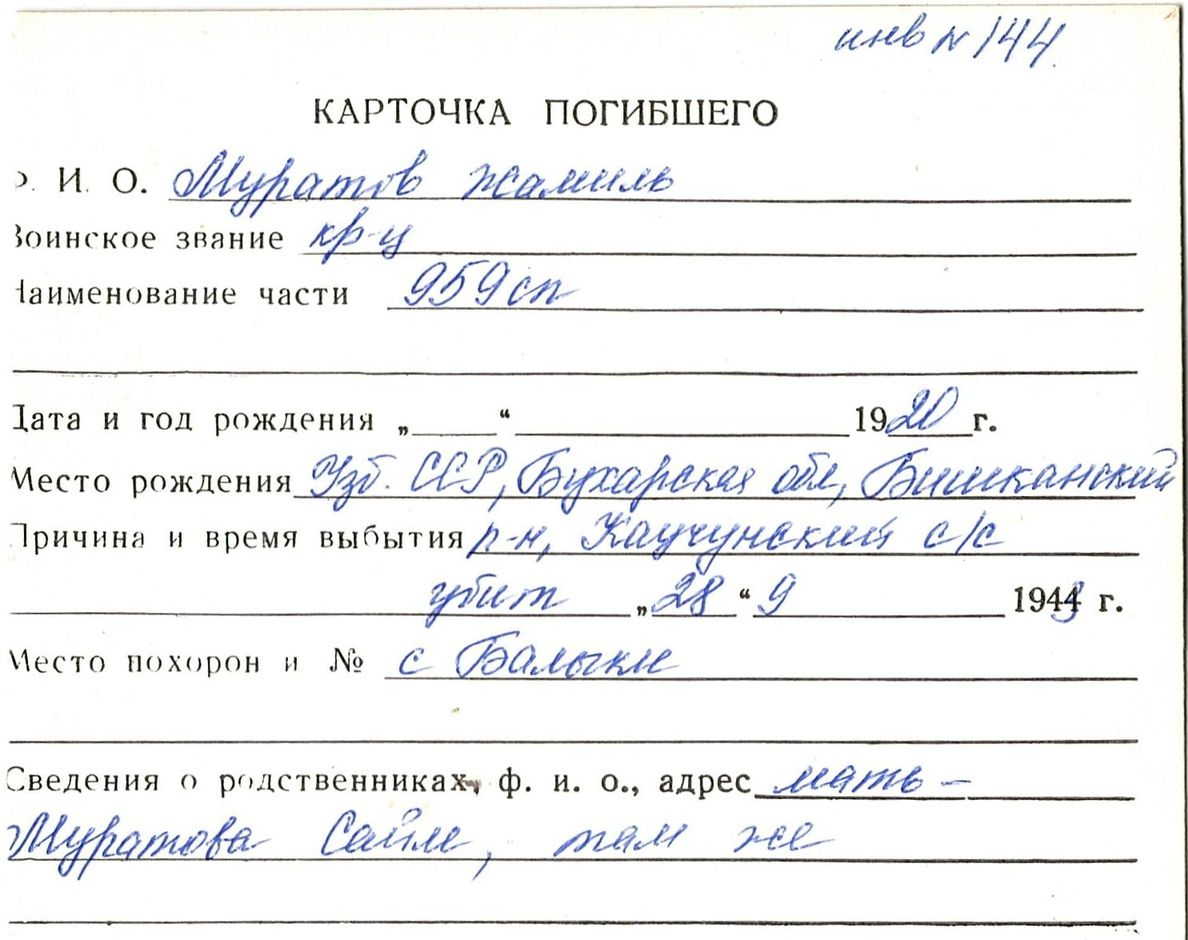 инв № 144.
КАРТОЧКА ПОГИБШЕГО
Ф. И. О. Муратов Жамиль
Воинское звание кр-ц
Наименование части 959 сп
Дата и год рождения „ “ 1920 г.
Место рождения Узб. ССР, Бухарская обл, Бишканский
Причина и время выбытия р-н, Каучунский с/с
убит „28“ 9 1943 г.
Место похорон и № с Балыкли
Сведения о родственниках, ф. и. о., адрес мать –
Муратова Сайли, там же